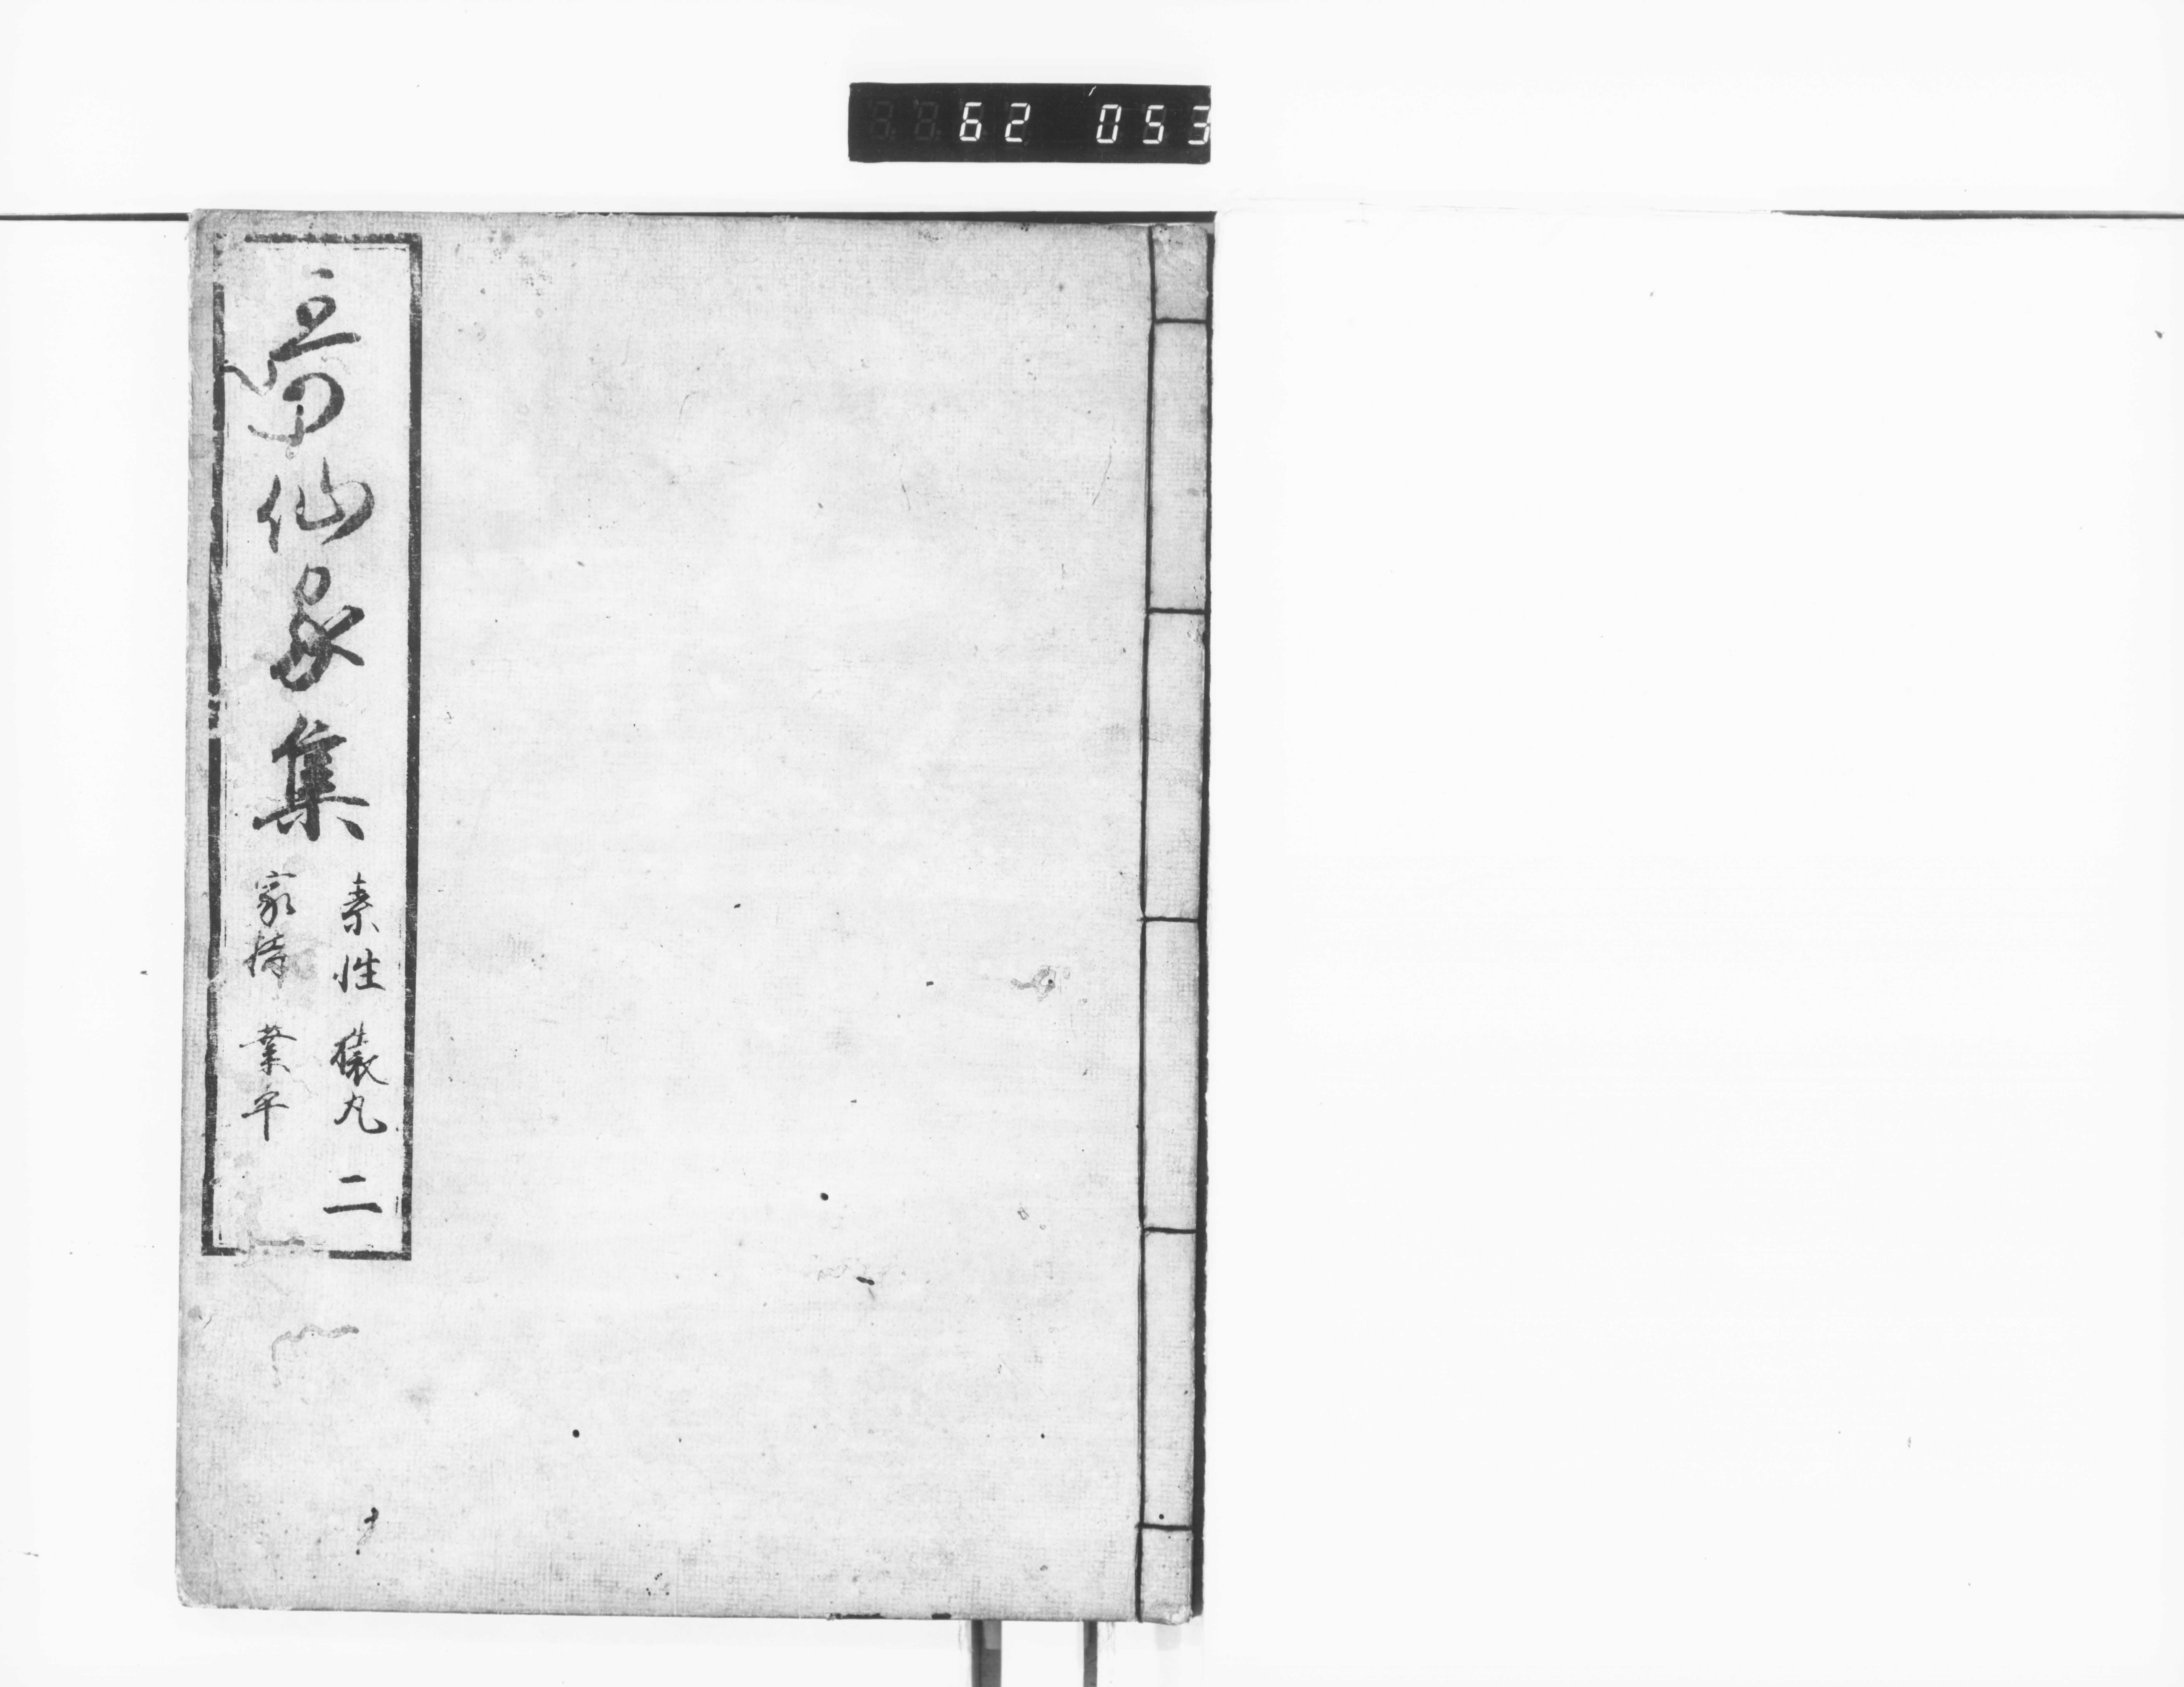 62 053
謌仙家集
素性 猿丸 二
家持 業平